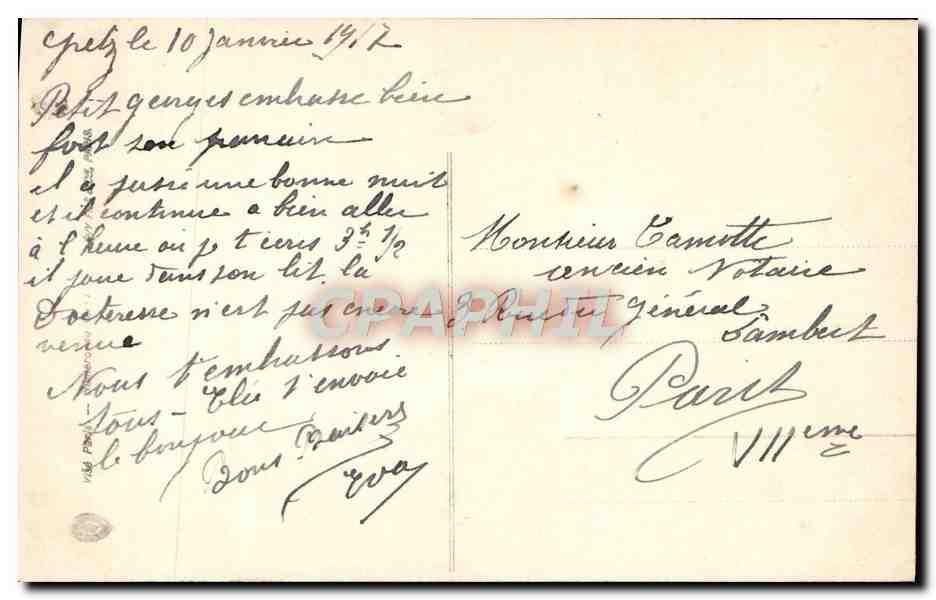 Gretz le 10 Janvier 1917
Petit georges embrasse bien
fort son parrain
il a passé une bonne nuit
et il continue a bien aller
à l'heure où je t'écris 3h 1/2
il joue dans son lit. la
Docteresse n'est pas encore
venue
Nous t'embrassons
tous - t'envoie
le bonjour
Bons Baisers
Eva
Monsieur Tamotte
ancien Notaire
3 Rue du Général
Lambert
Paris
VIIeme
VISA Paris
CPAPHIL